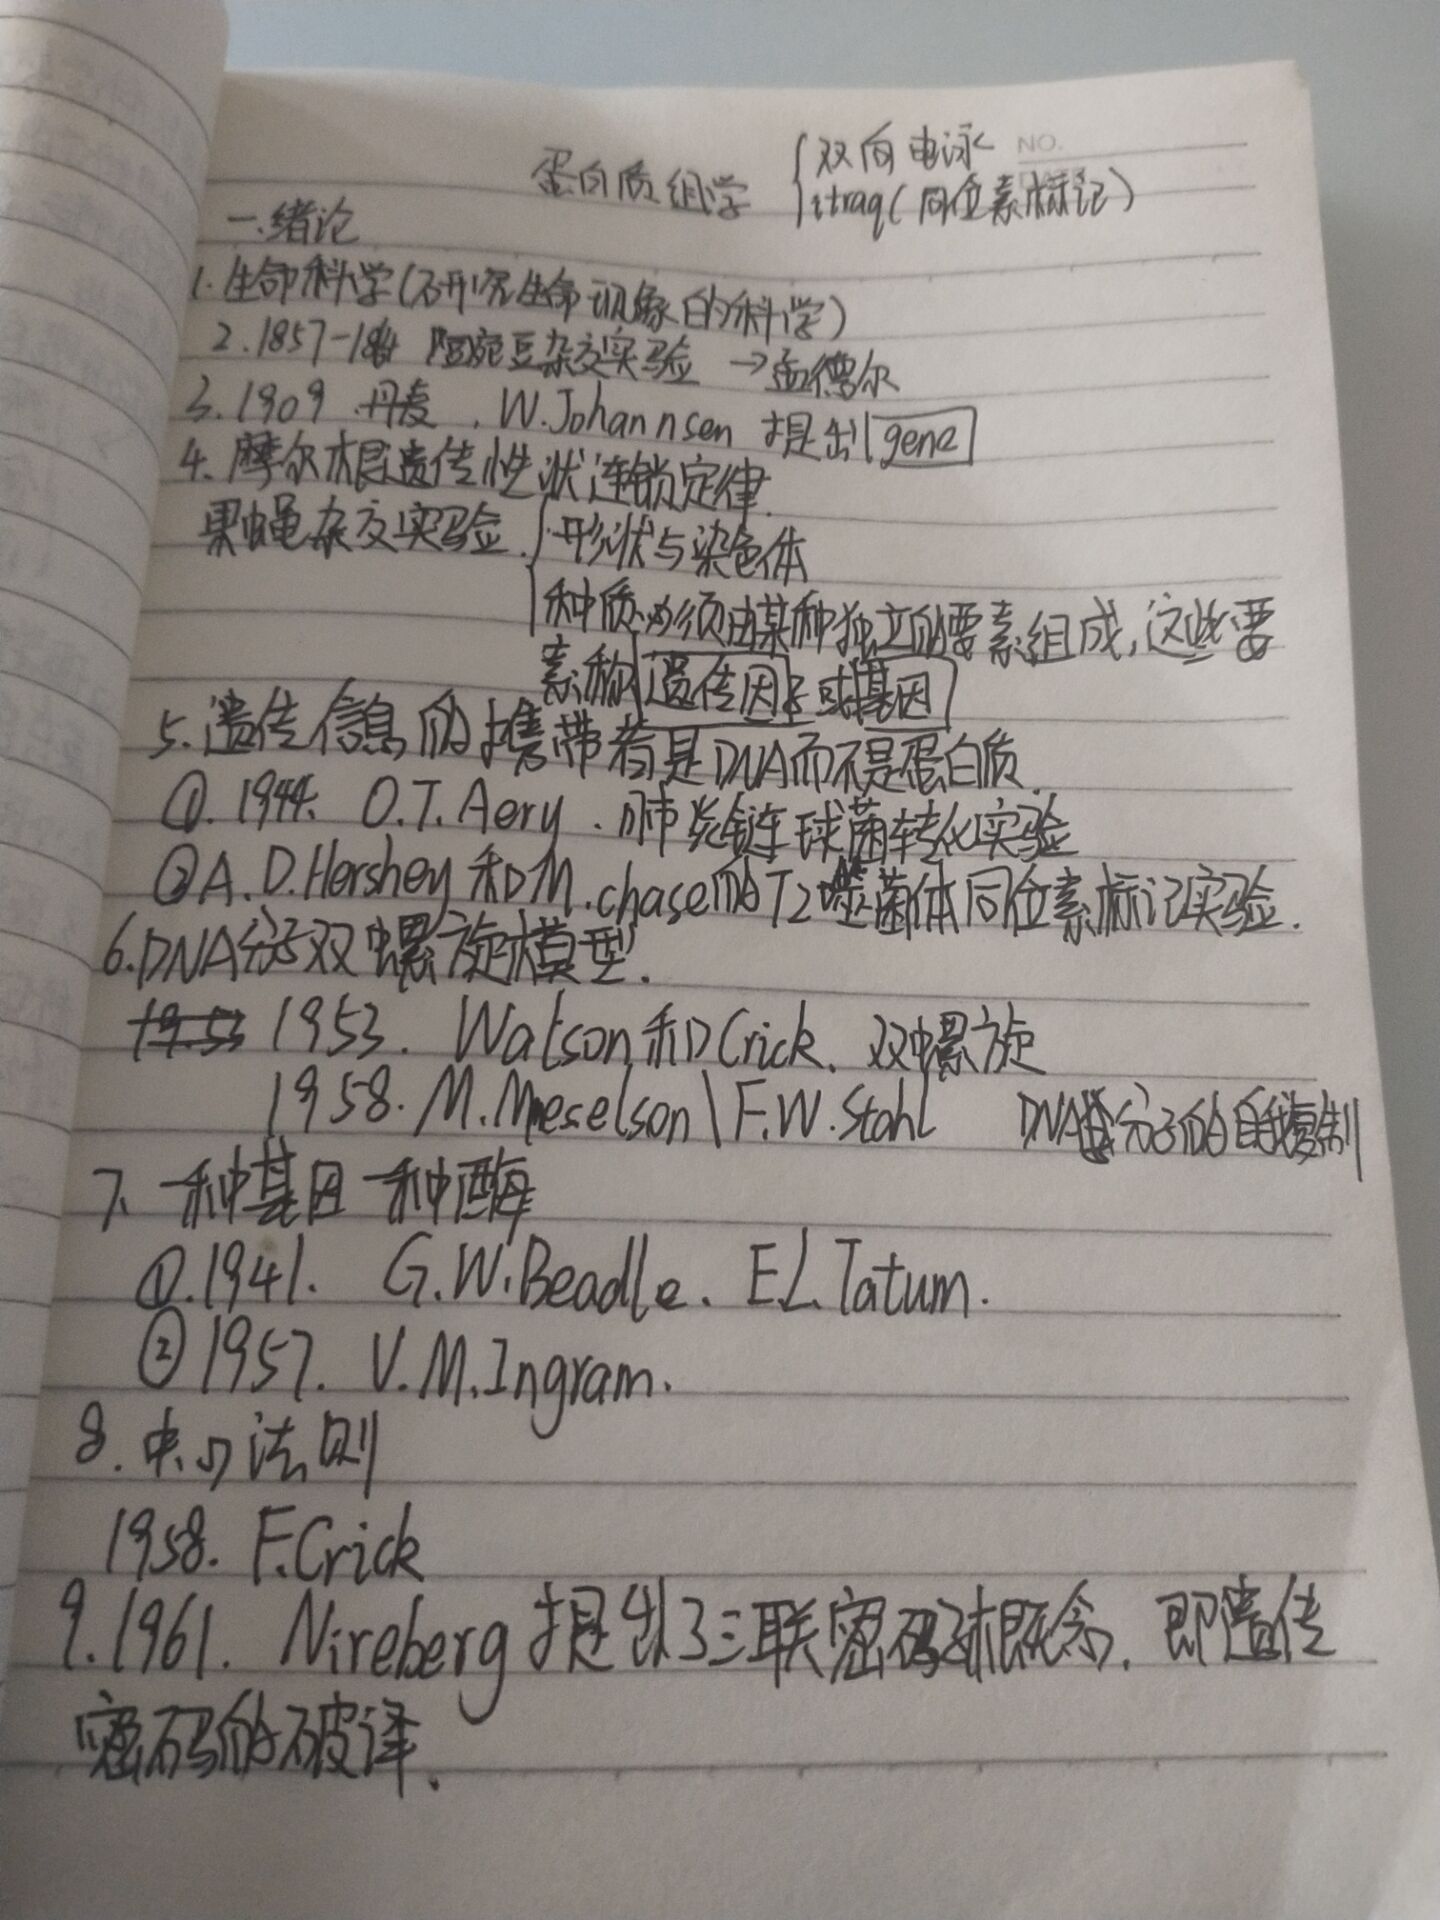 NO.
蛋白质组学 { 双向电泳
itraq(同位素标记)
一.绪论
1.生命科学(研究生命现象的科学)
2.1857-18 豌豆杂交实验 →孟德尔
3.1909 .丹麦 , W.Johannsen 提出 gene
4.摩尔根遗传性状连锁定律.
果蝇杂交实验. { 形状与染色体
种质必须由某种独立的要素组成,这些要
素称遗传因子或基因
5.遗传信息的携带者是DNA而不是蛋白质.
①.1944. O.T.Aery.肺炎链球菌转化实验
②A.D.Hershey和M.chase的T2噬菌体同位素标记实验.
6.DNA分子双螺旋模型.
1953 1953. Watson和Crick. 双螺旋
1958. M.Meselson\F.W.Stahl DNA分子的自我复制
7、一种基因一种酶
①.1941. G.W.Beadle. E.L.Tatum.
②1957. V.M.Ingram.
8.中心法则
1958. F.Crick
9.1961. Nireberg提出了三联密码子概念. 即遗传
密码的破译.